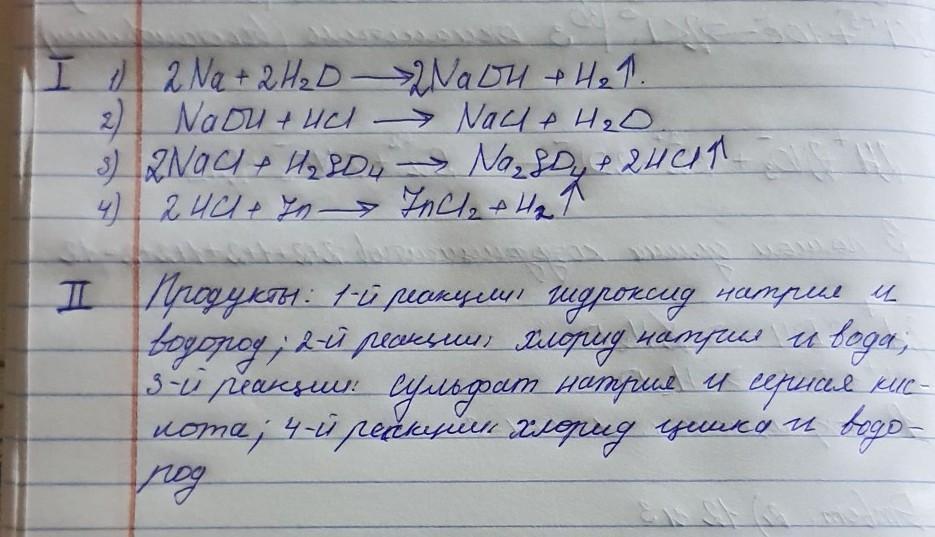 I 1) 2Na + 2H₂O ⟶ 2NaOH + H₂↑.
2) NaOH + HCl ⟶ NaCl + H₂O
3) 2NaCl + H₂SO₄ ⟶ Na₂SO₄ + 2HCl↑
4) 2HCl + Zn ⟶ ZnCl₂ + H₂↑
II Продукты: 1-й реакции: гидроксид натрия и
водород; 2-й реакции: хлорид натрия и вода;
3-й реакции: сульфат натрия и серная кис-
лота; 4-й реакции: хлорид цинка и водо-
род